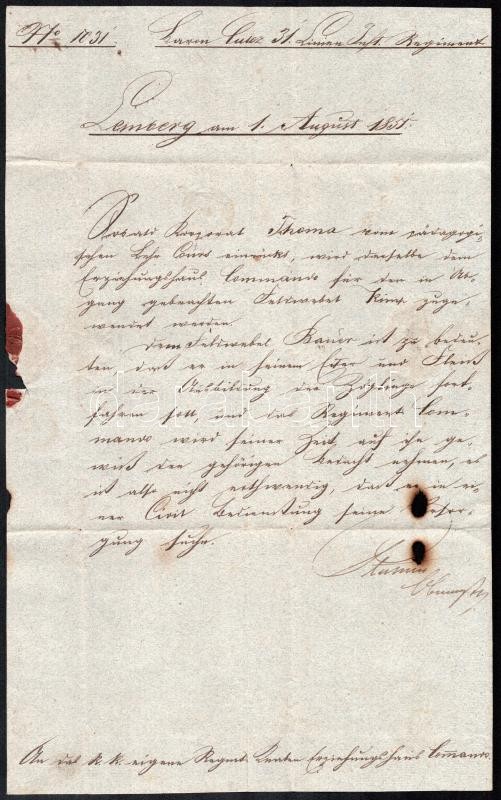 No 1031. Baron Culoz 31. Linien Inft. Regiment
Lemberg am 1. August 1851.
Sobald Korporal Thoma vom pädagogi-
schen Lehr Curs einrückt, wird derselbe dem
Erziehungshaus Commando für den in Ab-
gang gebrachten Feldwebel zuge-
wendet werden.
Dem Feldwebel ist zu bedeu-
ten daß er in seinem Eifer und Fleiß
in der Ausbildung der Zöglinge fort-
fahren soll, und das Regiments Com-
mando wird seiner Zeit auf ihn ge-
wiß den gehörigen Bedacht nehmen, es
ist also nicht nothwendig, daß er in ei-
ner Civil Bedienstung seine Versor-
gung suche.
Oberst
An das k. k. eigene Regmts Knaben Erziehungshaus Commando